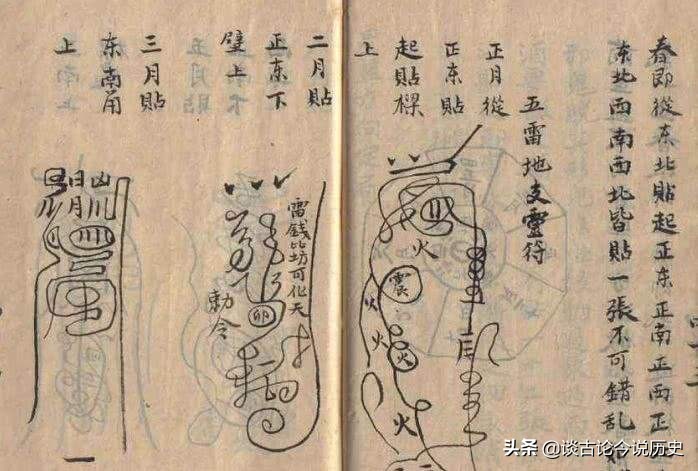 春即從东北貼起正东正南正西正
东北西南西北皆貼一張不可錯乱
五雷地支靈符
正月從
正东貼
起貼樑
上
火
震
火
火
火
火
二月貼
正东下
璧上
雷錢比坊可化天
卯
勅令
三月貼
东南角
上
日月
头条 @谈古论今说历史